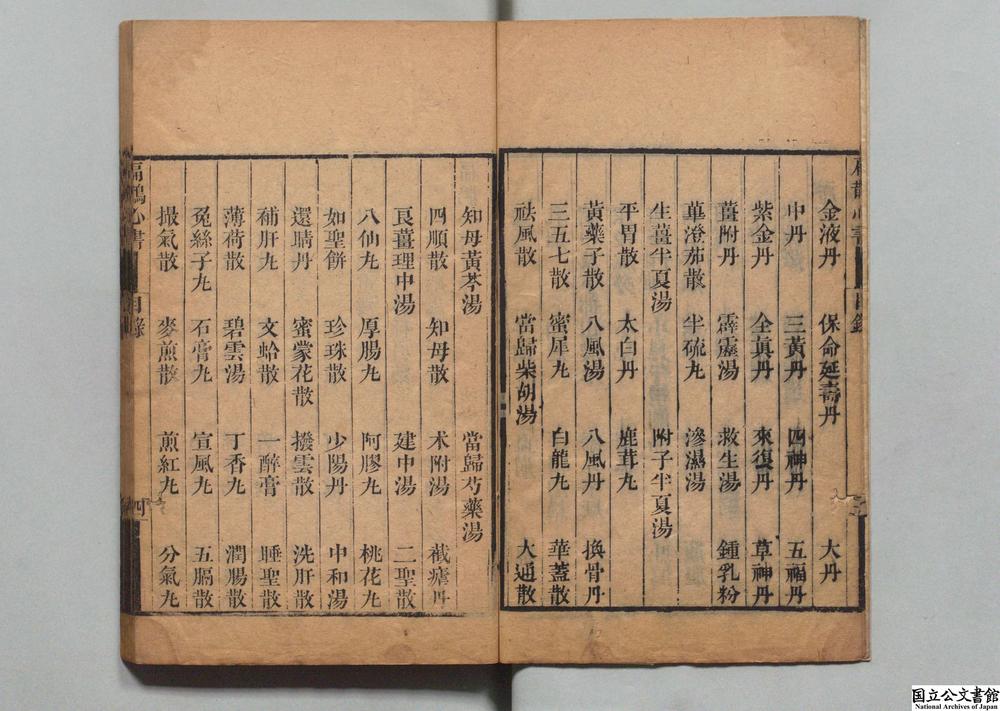 金液丹 保命延壽丹 大丹
中丹 三黃丹 四神丹 五福丹
紫金丹 全眞丹 來復丹 草神丹
薑附丹 霹靂湯 救生湯 鍾乳粉
蓽澄茄散 半硫丸 滲濕湯
生薑半夏湯 附子半夏湯
平胃散 太白丹 鹿茸丸
黃藥子散 八風湯 八風丹 換骨丹
三五七散 蜜犀丸 白龍丸 華蓋散
祛風散 當歸柴胡湯 大通散
知母黃芩湯 當歸芍藥湯
四順散 知母散 朮附湯 截瘧丹
良薑理中湯 建中湯 二聖散
八仙丸 厚腸丸 阿膠丸 桃花丸
如聖餅 珍珠散 少陽丹 中和湯
還睛丹 蜜蒙花散 撥雲散 洗肝散
補肝丸 文蛤散 一醉膏 睡聖散
薄荷散 碧雲湯 丁香丸 潤腸散
菟絲子丸 石膏丸 宣風丸 五膈散
撮氣散 麥煎散 煎紅丸 分氣丸
扁鵲心書 目錄 四
国立公文書館
National Archives of Japan